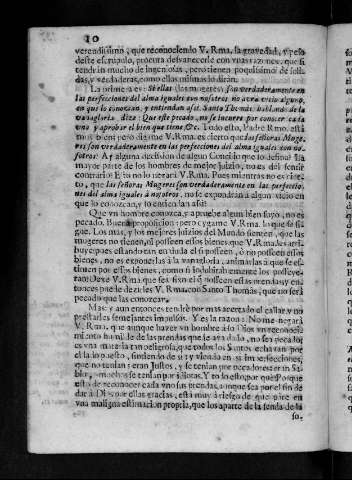 10
verendissimo, que reconociendo V. Rma. la gravedad, y peso
deste escrupulo, procura desvanecerle con vnas razones, que si
tendràn mucho de ingeniosas, pero tienen poquissimo de soli-
das, y verdaderas, como ellas mismas lo diràn.
La primera es: Si ellas (las mugeres) son verdaderamente en
las perfecciones del alma iguales a nosotros no avrà vicio alguno,
en que lo conozcan, y entiendan assi. Santo Thomàs hablando de la
vanagloria dize: Que este pecado, no se incurre por conocer cada
vno y aprobar el bien que tiene, &c. Todo esto, Padre Rmo. està
muy bien; pero digame V. Rma. es cierto que las señoras Muge-
res son verdaderamente en las perfecciones del alma iguales con no-
sotros? Ay alguna decission de algun Concilio que lo defina? La
mayor parte de los hombres de mejor juizio, no es del sentir
contrario? Esto no lo negarà V. Rma. Pues mientras no es cier-
to, que las señoras Mugeres son verdaderamente en las perfeccio-
nes del alma iguales à nosotros, no se expondràn à algun vicio en
que lo conozcan, y lo entiendan assi?
Que vn hombre conozca, y apruebe algun bien suyo, no es
pecado. Buena proposicion: pero oygame V. Rma. lo que se si-
gue. Los mas, y los mejores juizios del Mundo sienten, que las
mugeres no tienen, ni posseen essos bienes que V. Rma. les atri-
buye: pues estando tan en duda el si posseen, ò no posseen essos
bienes, no es exponerlas à la vanagloria, animarlas à que se esti-
men por essos bienes, como si indubitablemente los posseye-
ran? Dexe V. Rma. que sea fixo el si posseen estas prendas, y en-
tonces puede dezirles V. Rma. con Santo Thomàs, que no serà
pecado que las conozcan.
Mas: y aun entonces tendrè por mas acertado el callar, y no
prestarles semejantes impulsos. Y es la razon: No me negarà
V. Rma. que aunque haver vn hombre à lo Dios vn conoci-
miento humilde de las prendas que le ava dado, no sea pecado;
es vna materia tan peligrosa, que todos los Santos echavan por
el lado opuesto, sintiendo de si, y viendo en si imperfecciones,
que no tenian; eran Justos, y se tenian por pecadores: eran Sa-
bios, y muchos se tenian por idiotas. Y todo esto, por què? Porque
esto de reconocer cada vno sus prendas, aunque sea por el fin de
dar à Dios por ellas gracias, està muy à riesgo de que pare en
vna maligna estimacion propria, que los aparte de la senda de la
so-